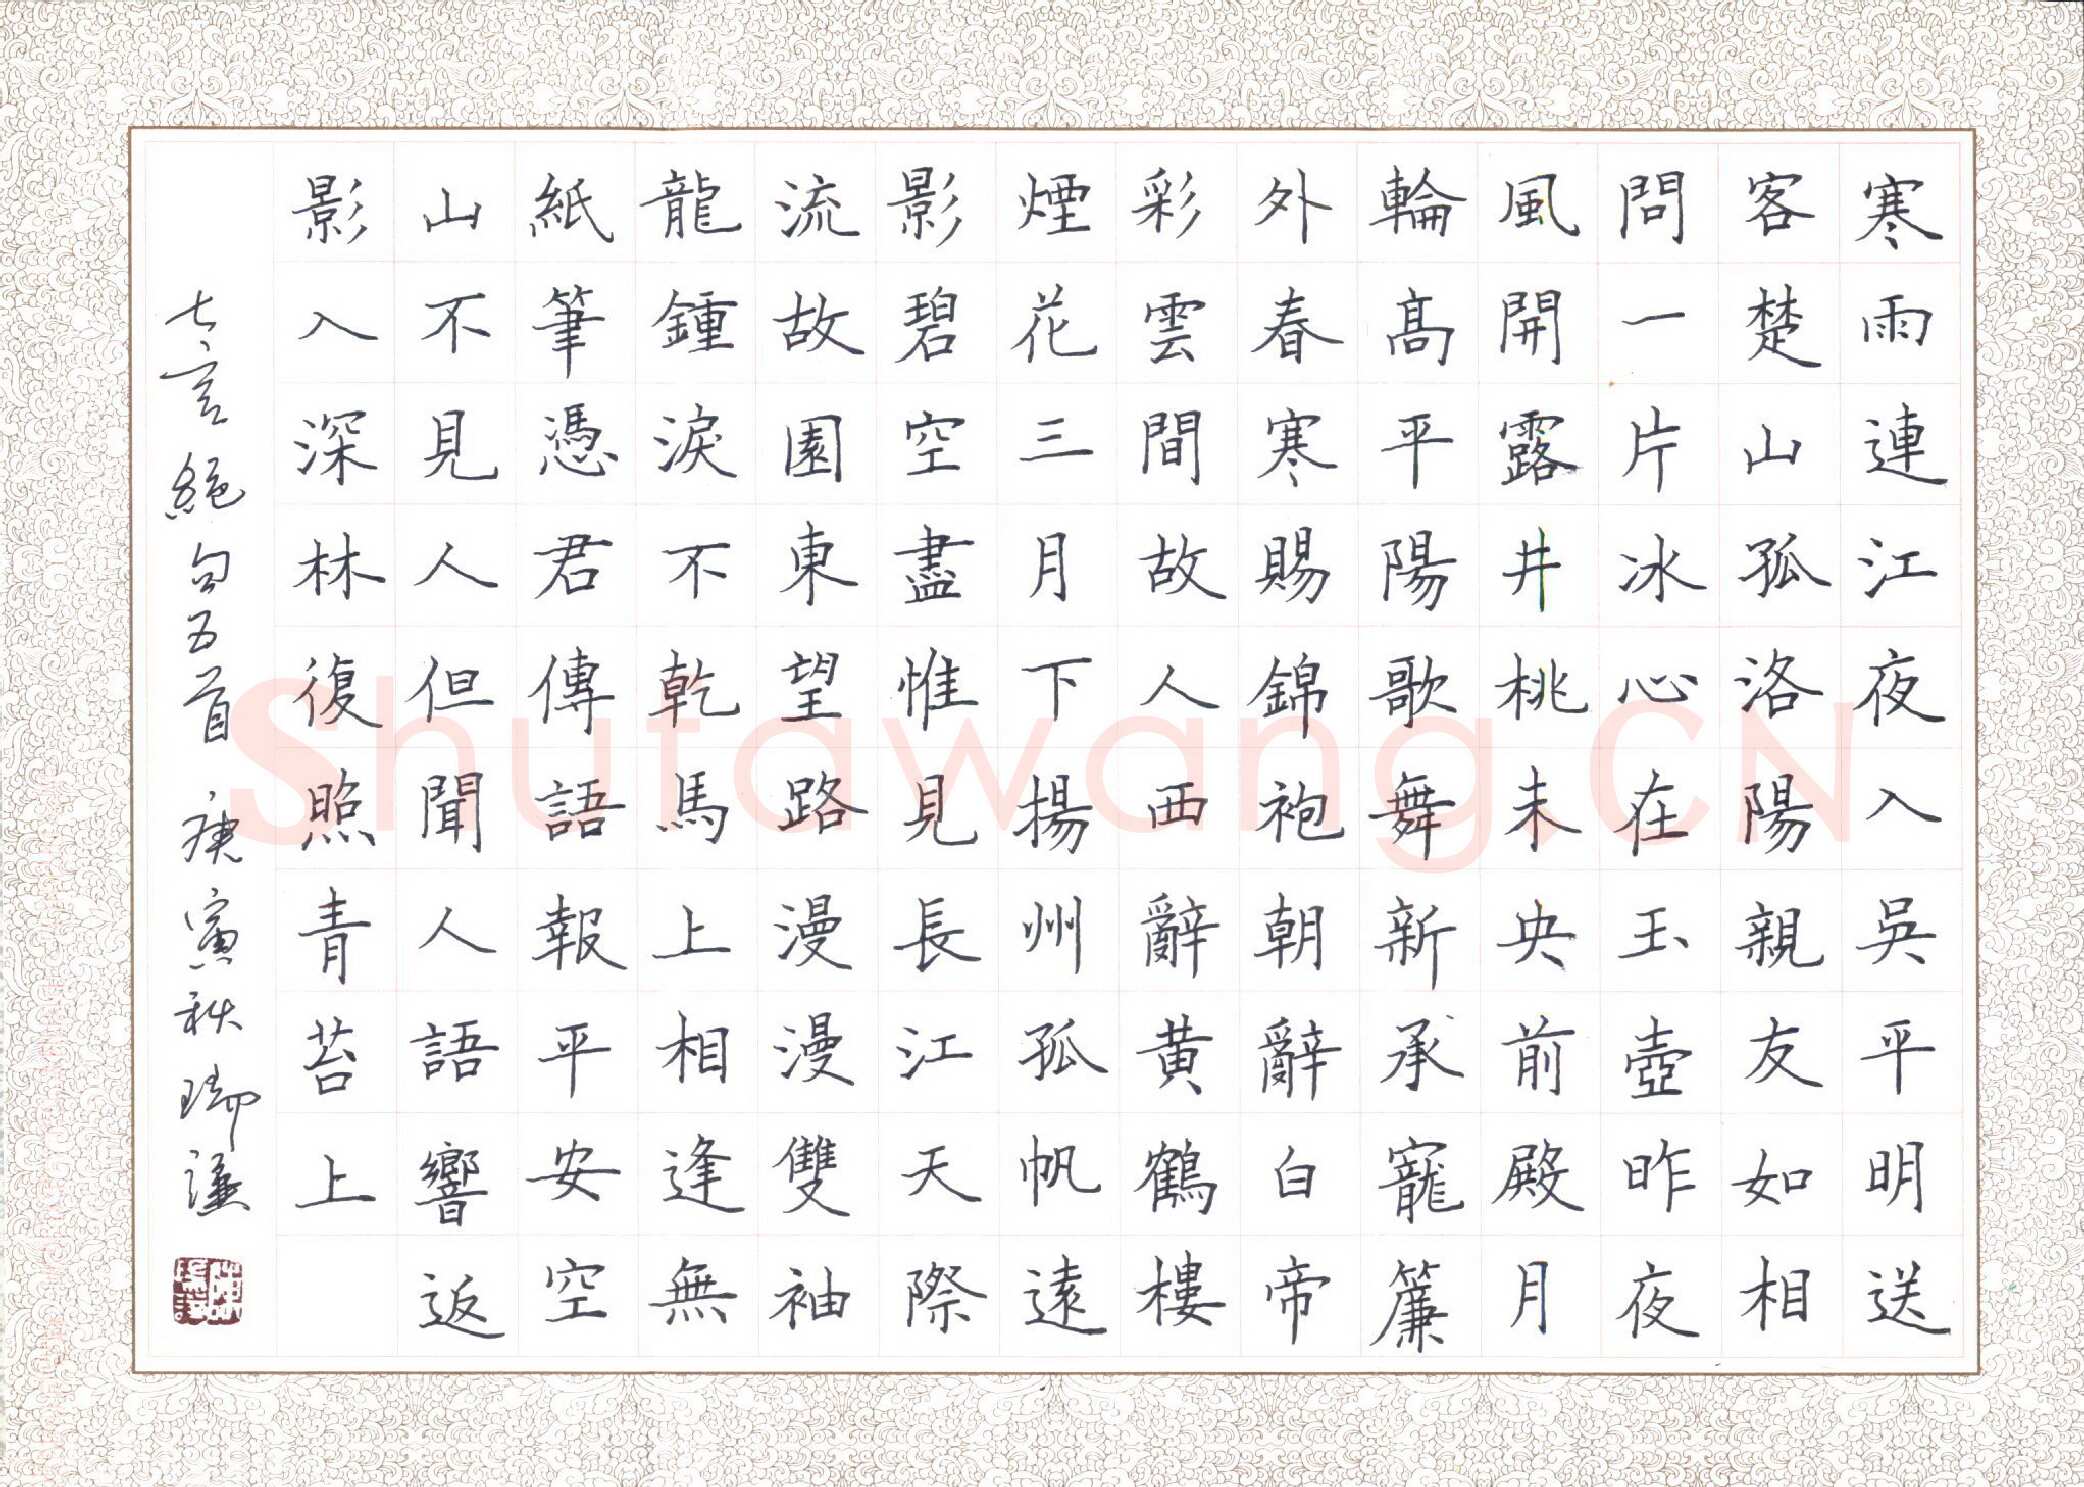 寒雨連江夜入吳平明送
客楚山孤洛陽親友如相
問一片冰心在玉壺昨夜
風開露井桃未央前殿月
輪高平陽歌舞新承寵簾
外春寒賜錦袍朝辭白帝
彩雲間故人西辭黃鶴樓
煙花三月下揚州孤帆遠
影碧空盡惟見長江天際
流故園東望路漫漫雙袖
龍鍾淚不乾馬上相逢無
紙筆憑君傳語報平安空
山不見人但聞人語響返
影入深林復照青苔上
七言絕句五首 庚寅秋瑞謹
Shufawang.CN